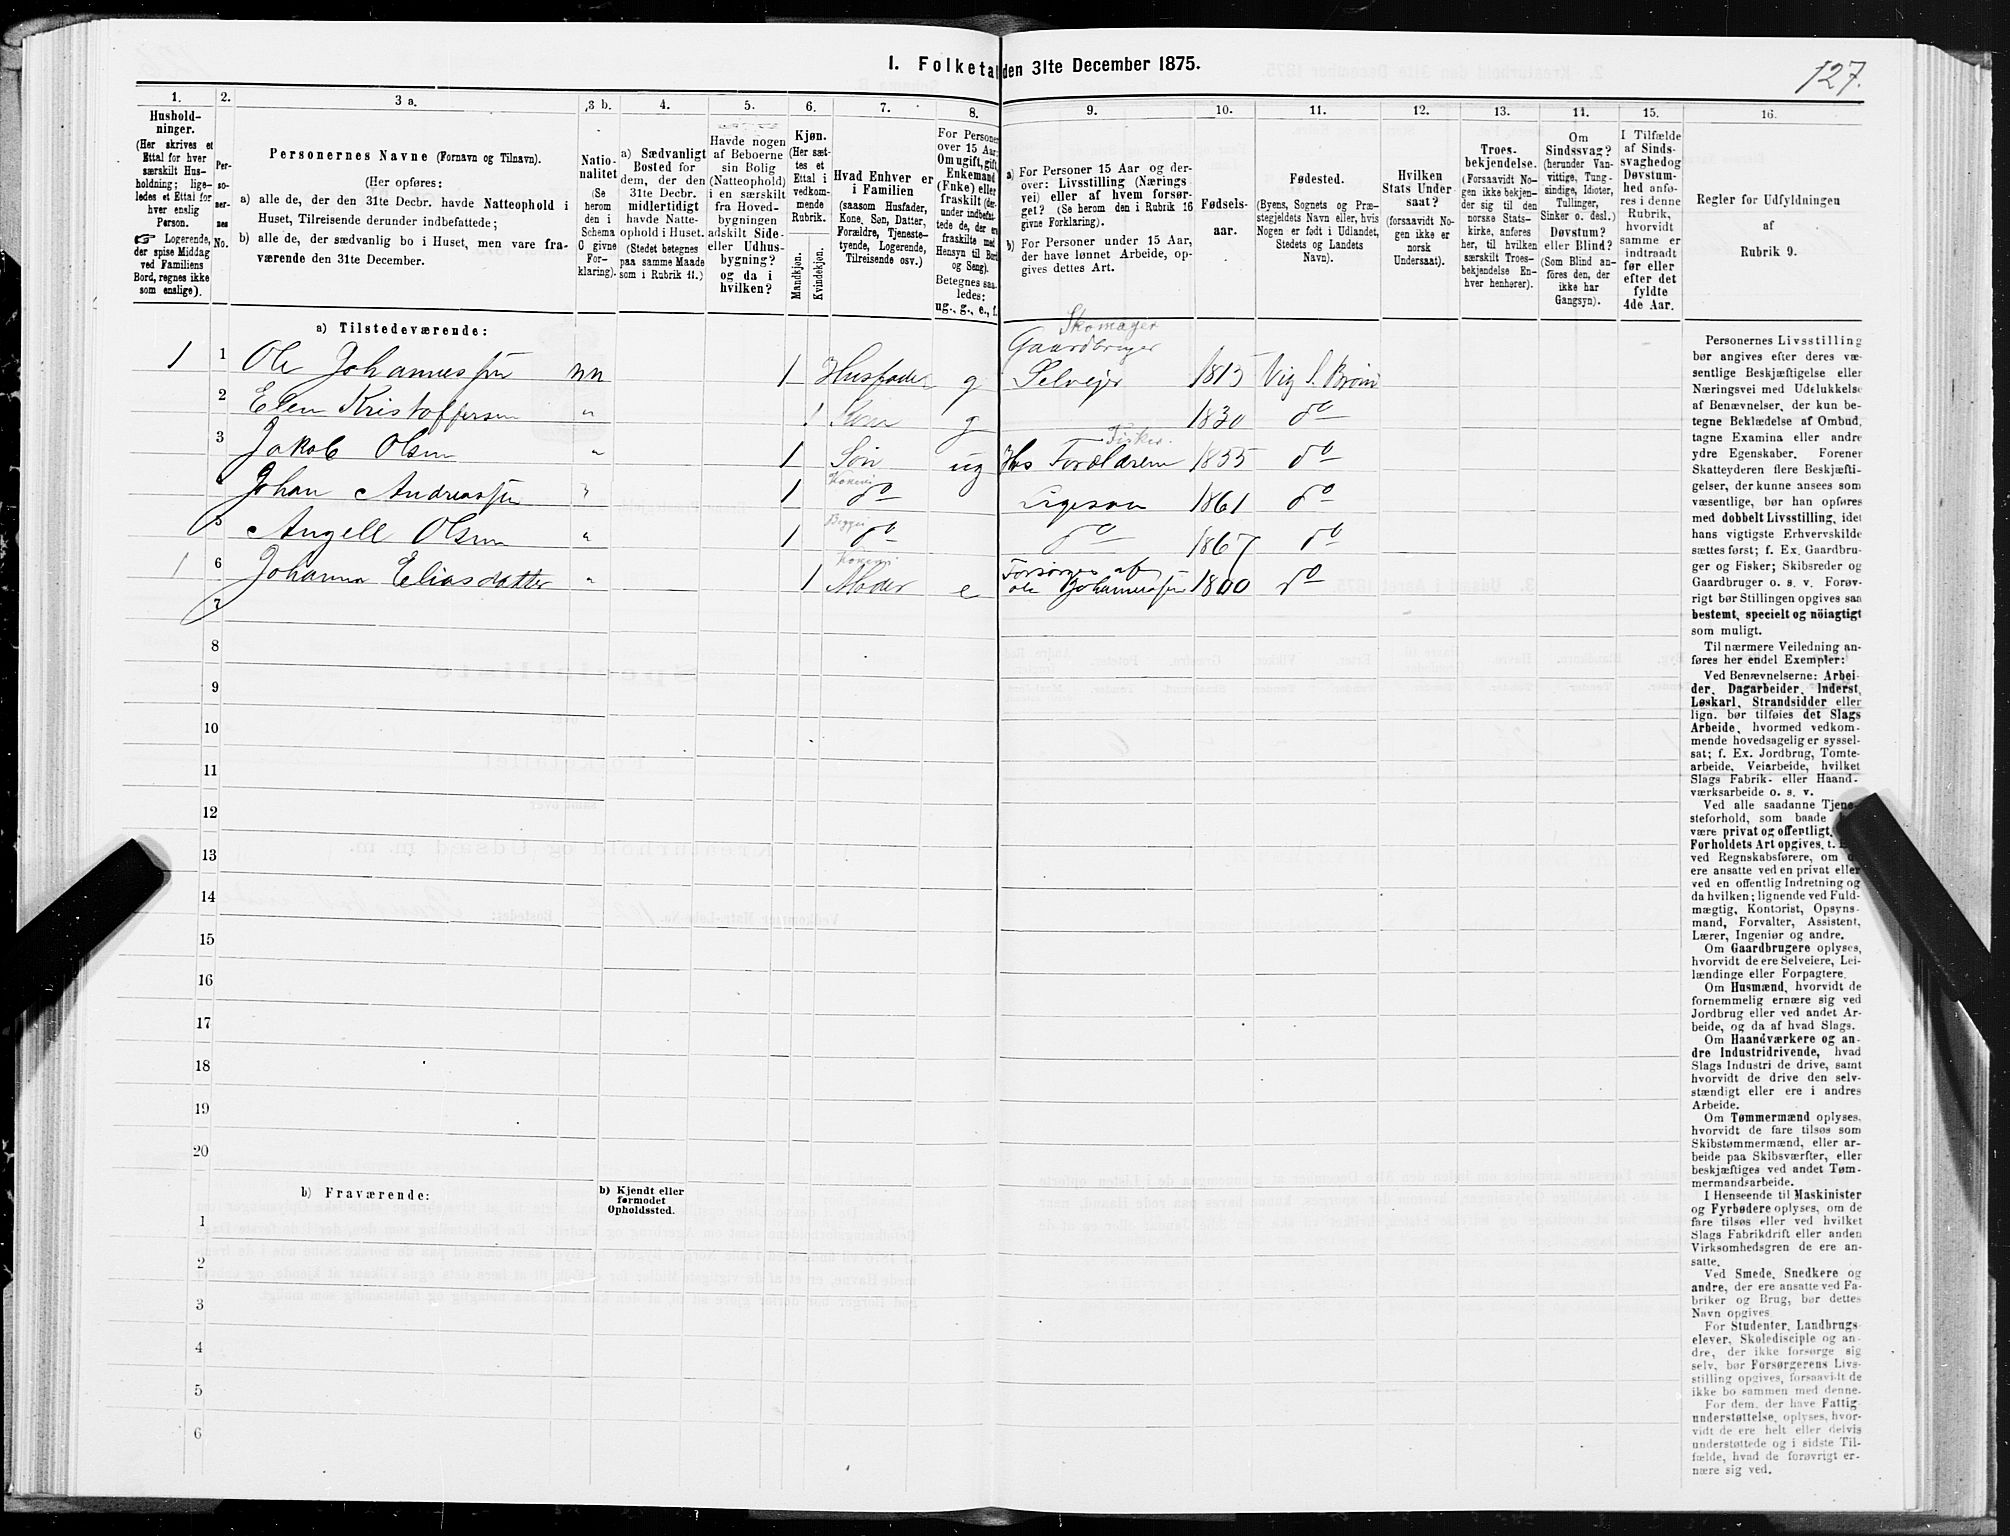 127.
1. Folketal den 31te December 1875.
1. 2. 3 a. 3 b. 4. 5. 6. 7. 8. 9. 10. 11. 12. 13. 14. 15. 16.
Hushold-
ninger.
(Her skrives et
Ettal for hver
særskilt Hus-
holdning; lige-
ledes et Ettal for
hver enslig
Person.
☞ Logerende,
der spise Middag
ved Familiens
Bord, regnes ikke
som enslige).
Per-
so-
ner-
nes
No.
Personernes Navne (Fornavn og Tilnavn).
(Her opføres:
a) alle de, der den 31te Decbr. havde Natteophold i
Huset, Tilreisende derunder indbefattede;
b) alle de, der sædvanlig bo i Huset, men vare fra-
værende den 31te December.
Natio-
nalitet
(Se
herom
den i
Schema
O givne
For-
klaring).
a) Sædvanligt
Bosted for
dem, der den
31te Decbr.
midlertidigt
havde Natte-
ophold i Huset.
(Stedet betegnes
paa samme Maade
som i Rubrik 11.)
Havde nogen
af Beboerne
sin Bolig
(Natteophold)
i en særskilt
fra Hoved-
bygningen
adskilt Side-
eller Udhus-
bygning?
og da i
hvilken?
Kjøn.
(Her sæt-
tes et
Ettal i
vedkom-
mende
Rubrik.
Mandkjøn.
Kvindekjøn.
Hvad Enhver er
i Familien
(saasom Husfader,
Kone, Søn, Datter,
Forældre, Tjeneste-
tyende, Logerende,
Tilreisende osv.)
For Personer
over 15 Aar:
Om ugift, gift,
Enkemand
(Enke) eller
fraskilt (der-
under indbefat-
tede de, der ere
fraskilte med
Hensyn til Bord
og Seng).
Betegnes saa-
ledes:
ug., g., e., f.
a) For Personer 15 Aar og der-
over: Livsstilling (Nærings-
vei) eller af hvem forsør-
get? (Se herom den i Rubrik 16
givne Forklaring).
b) For Personer under 15 Aar,
der have lønnet Arbeide, op-
gives dettes Art.
Fødsels-
aar.
Fødested.
(Byens, Sognets og Præ-
stegjeldets Navn eller, hvis
Nogen er født i Udlandet,
Stedets og Landets
Navn).
Hvilken
Stats Under-
saat?
(forsaavidt No-
gen ikke er
norsk
Undersaat).
Troes-
bekjendelse.
(Forsaavidt No-
gen ikke bekjen-
der sig til den
norske Stats-
kirke, anføres
her, til hvilken
særskilt Troes-
bekjendelse En-
hver henhører).
Om
Sindssvag?
(herunder Van-
vittige, Tung-
sindige, Idioter,
Tullinger,
Sinker o. desl.)
Døvstum?
eller Blind?
(Som Blind an-
føres den, der
ikke har
Gangsyn).
I Tilfælde
af Sinds-
svaghed og
Døvstum-
hed anfø-
res i denne
Rubrik,
hvorvidt
samme er
indtraadt
før eller
efter det
fyldte
4de Aar.
Regler for Udfyldningen
af
Rubrik 9.
a) Tilstedeværende:
Skomager
Gaardbruger
1 1 Ole Johannessen nn 1 Husfader g Selveier 1815 Vig S. Brøn
2 Elen Kristoffersen " 1 Kone g 1830 do
Fisker.
3 Jakob Olsen " 1 Søn ug Hos Forældrene 1855 do
4 Johan Andreassen " 1 do Ligesaa 1861 do
5 Angell Olsen " 1 do do 1867 do
Forsørges af
1 6 Johanna Eliasdatter " 1 Moder e Ole Johannessen 1800 do
7
8
9
10
11
12
13
14
15
16
17
18
19
20
b) Fraværende:
b) Kjendt eller
formodet
Opholdssted.
1
2
3
4
5
6
Personernes Livsstilling
bør angives efter deres væ-
sentlige Beskjæftigelse eller
Næringsvei med Udelukkelse
af Benævnelser, der kun be-
tegne Beklædelse af Ombud,
tagne Examina eller andre
ydre Egenskaber. Forener
Skatteyderen flere Beskjæfti-
gelser, der kunne ansees som
væsentlige, bør han opføres
med dobbelt Livsstilling, idet
hans vigtigste Erhvervskilde
sættes først; f. Ex. Gaardbru-
ger og Fisker; Skibsreder og
Gaardbruger o. s. v. Forøv-
rigt bør Stillingen opgives saa
bestemt, specielt og nøiagtigt
som muligt.
Til nærmere Veiledning an-
føres her endel Exempler:
Ved Benævnelserne: Arbei-
der, Dagarbeider, Inderst,
Løskarl, Strandsidder eller
lign. bør tilføies det Slags
Arbeide, hvormed vedkom-
mende hovedsagelig er syssel-
sat; f. Ex. Jordbrug, Tomte-
arbeide, Veiarbeide, hvilket
Slags Fabrik- eller Haand-
værksarbeide o. s. v.
Ved alle saadanne Tjene-
steforhold, som baade
være privat og offentligt,
Forholdets Art opgives, t.
ved Regnskabsførere, om
ere ansatte ved en privat eller
ved en offentlig Indretning og
da hvilken; lignende ved Fuld-
mægtig, Kontorist, Opsyns-
mand, Forvalter, Assistent,
Lærer, Ingeniør og andre.
Om Gaardbrugere oplyses,
hvorvidt de ere Selveiere, Lei-
lændinge eller Forpagtere.
Om Husmænd, hvorvidt de
fornemmelig ernære sig ved
Jordbrug eller ved andet Ar-
beide, og da af hvad Slags.
Om Haandværkere og an-
dre Industridrivende, hvad
Slags Industri de drive, samt
hvorvidt de drive den selv-
stændigt eller ere i andres
Arbeide.
Om Tømmermænd oplyses,
hvorvidt de fare tilsøs som
Skibstømmermænd, eller ar-
beide paa Skibsværfter, eller
beskjæftiges ved andet Tøm-
mermandsarbeide.
I Henseende til Maskinister
og Fyrbødere oplyses, om de
fare tilsøs eller ved hvilket
Slags Fabrikdrift eller anden
Virksomhedsgren de ere an-
satte.
Ved Smede, Snedkere og
andre, der ere ansatte ved Fa-
briker og Brug, bør dettes
Navn opgives
For Studenter, Landbrugs-
elever, Skoledisciple og an-
dre, der ikke forsørge sig
selv, bør Forsørgerens Livs-
stilling opgives, forsaavidt de
ikke bo sammen med denne.
For dem, der have Fattig-
understøttelse, oplyses, hvor-
vidt de ere helt eller delvis
understøttede og i sidste Til-
fælde, hvad de forøvrigt er-
nære sig ved.